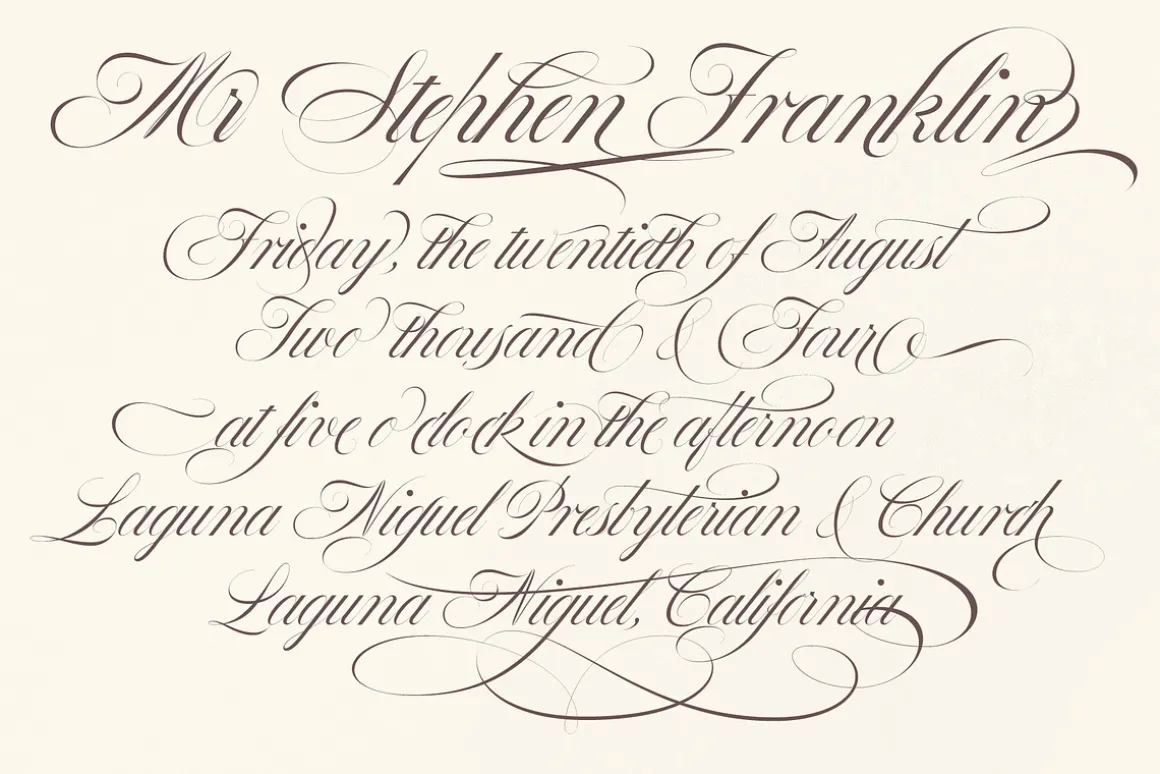 Mr Stephen Franklin
Friday, the twentieth of August
Two thousand & Four
at five o'clock in the afternoon
Laguna Niguel Presbyterian & Church
Laguna Niguel, California